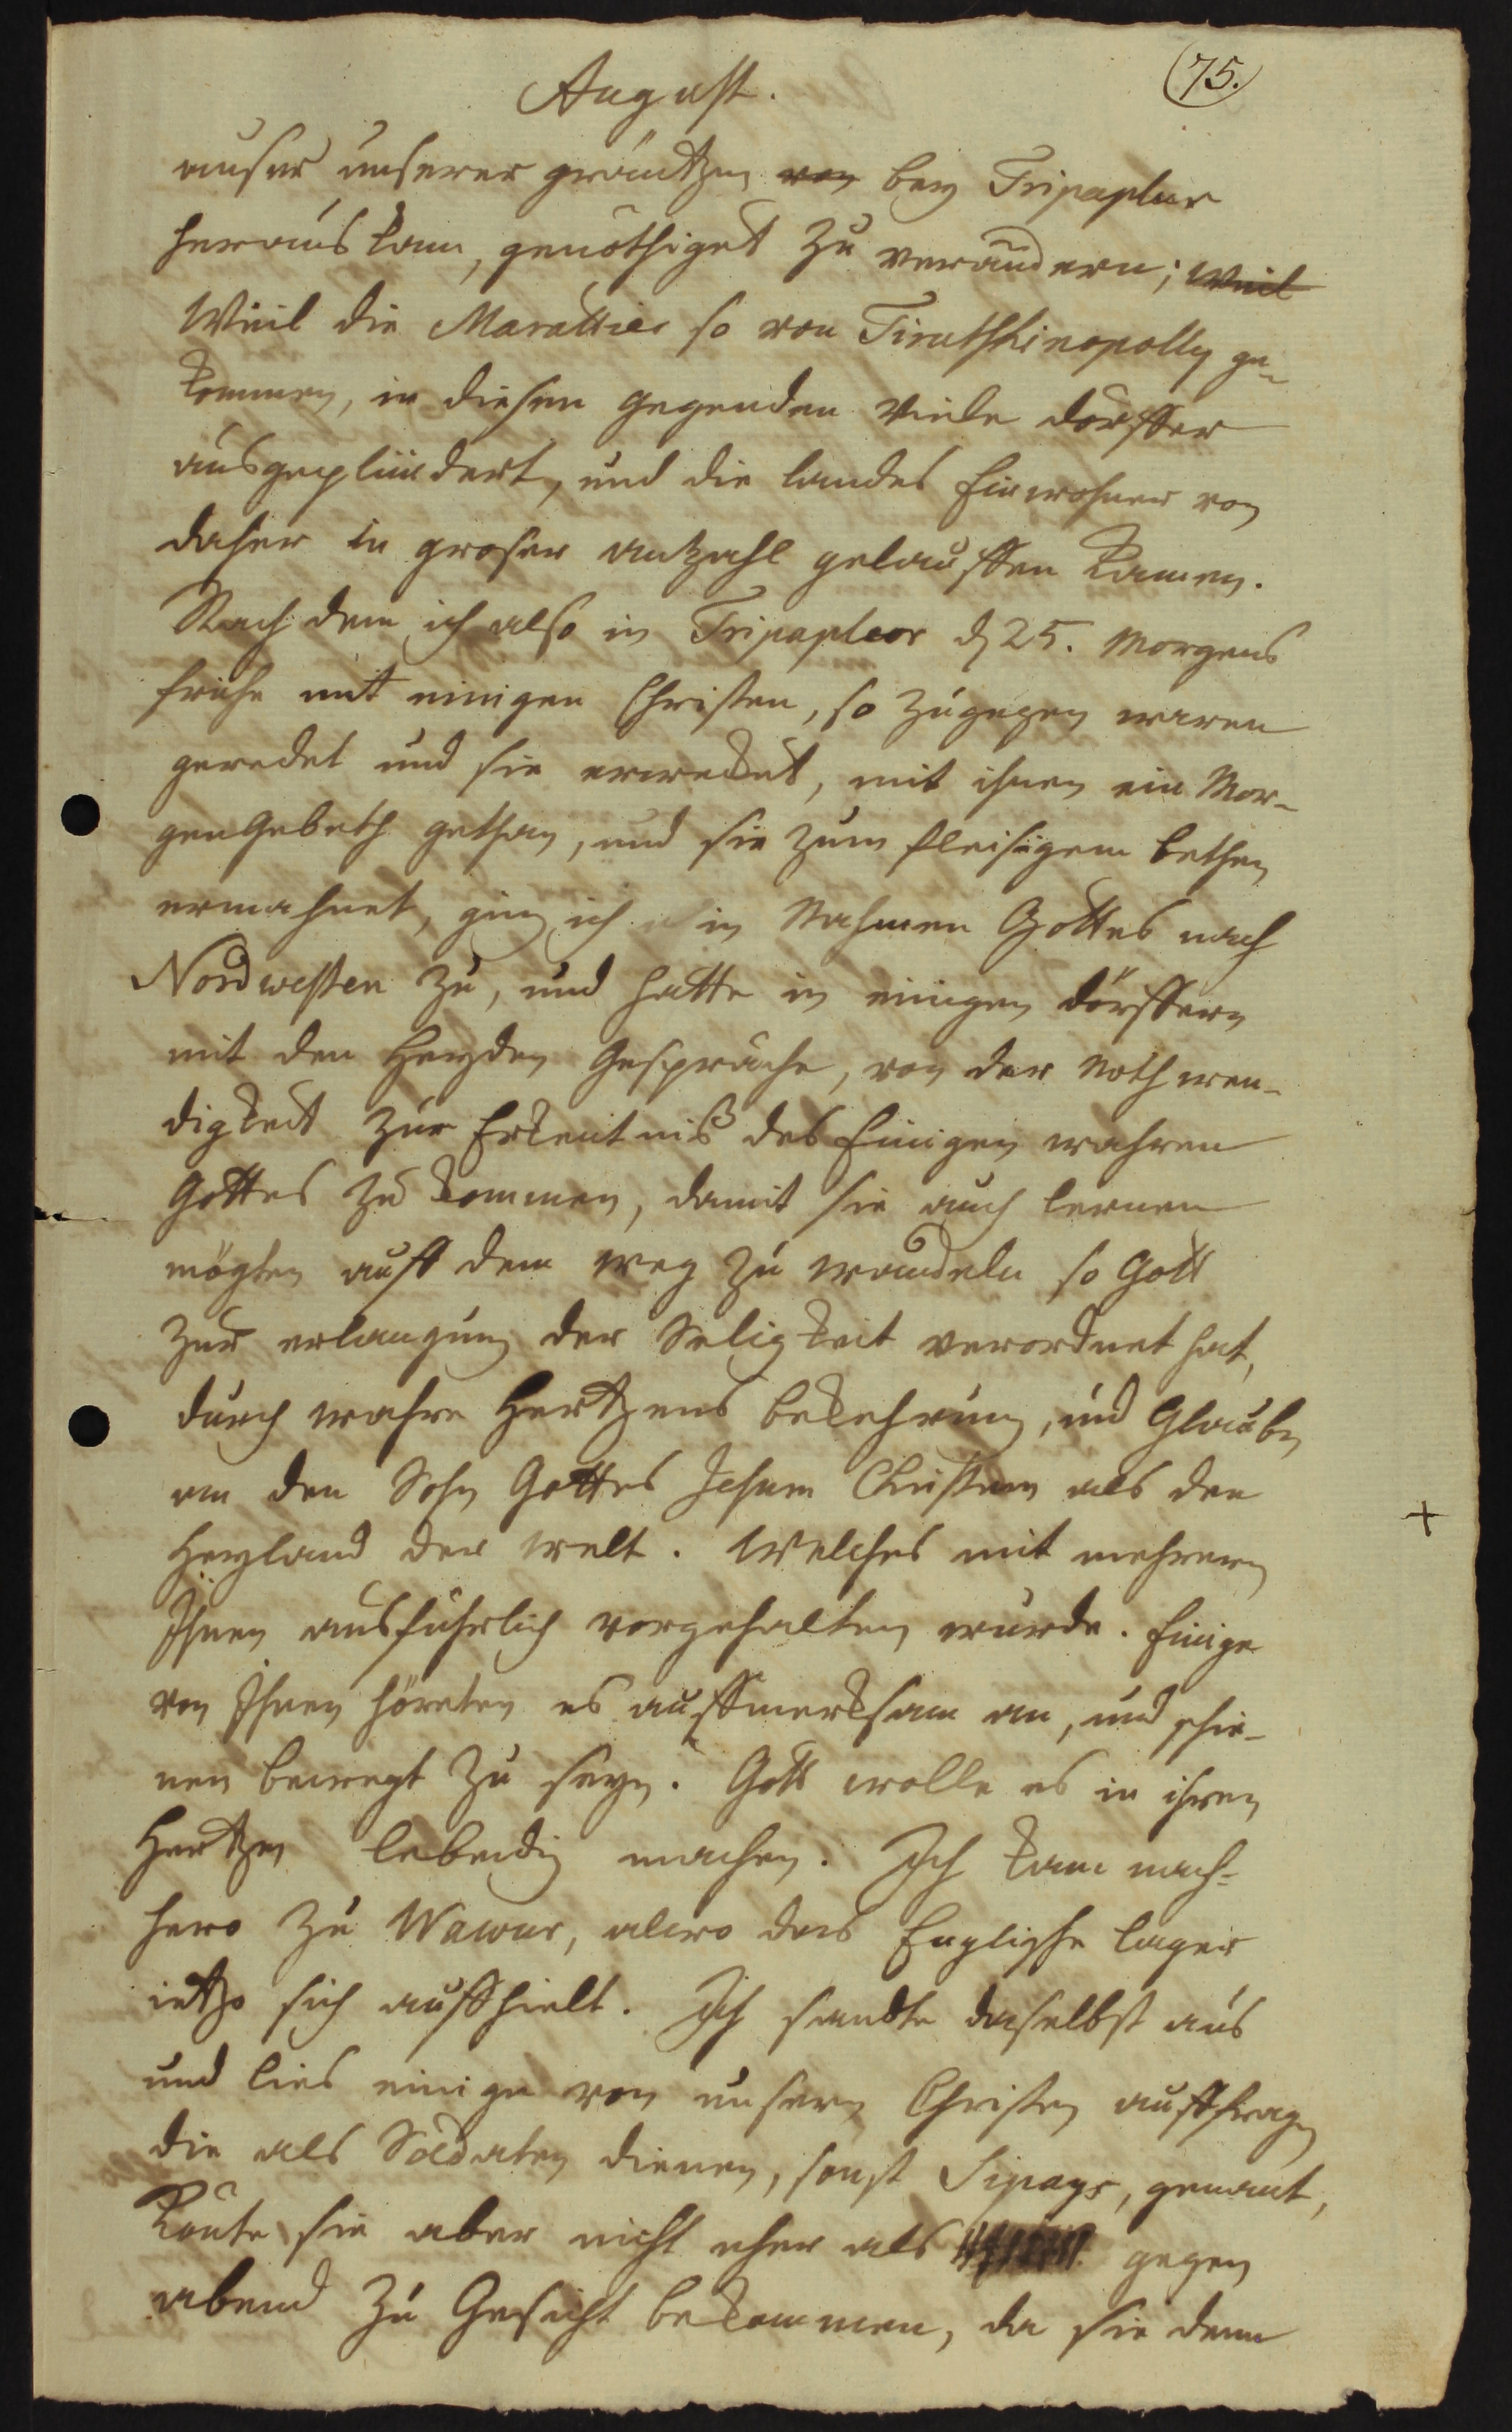 August.
(75.)
auser unserer gräntzen von bey Tripaplur
heraus kam, genöthiget zu verändern; weil
Weil die Marattier so von Tiruthsinapolly ge-
kommen, in diesen gegenden viele dörffer
ausgeplündert, und die landes Einwohner von
daher in groser antzahl gelauffen kamen.
Nach dem ich also in Tripapleor d 25. Morgens
frühe mit einigen Christen, so zugegen waren
geredet und sie erwecket, mit ihnen ein Mor-
gen Gebeth gethan, und sie zum fleisigem bethen
ermahnet, ging ich in Nahmen Gottes nach
Nordwesten zu, und hatte in einigen dörffern
mit den Heyden Gespräche, von der Nothwen-
digkeit zur Erkentniß des Einigen wahren
Gottes zu kommen, damit sie auch lernen
mögten auff dem weg zu wandeln so Gott
zur erlangung der Seligkeit verordnet hat,
durch wahre Hertzens bekehrung, und Glauben
an den Sohn Gottes Jesum Christum als den
Heyland der welt. Welches mit mehrern
Ihnen ausführlich vorgehalten wurde. Einige
von Ihnen höreten es auffmerksam an, und schie-
nen bewegt zu seyn. Gott wolle es in ihren
Hertzen lebendig machen. Ich kam nach-
hero zu Wawur, alwo das Englische lager
ietzo sich auffhielt. Ich sandte daselbst aus
und lies einige von unsern Christen auffragen
die als Soldaten dienen, sonst Sipays, genant,
konte sie aber nicht eher als gegen
abend zu Gesicht bekommen, da sie denn
+